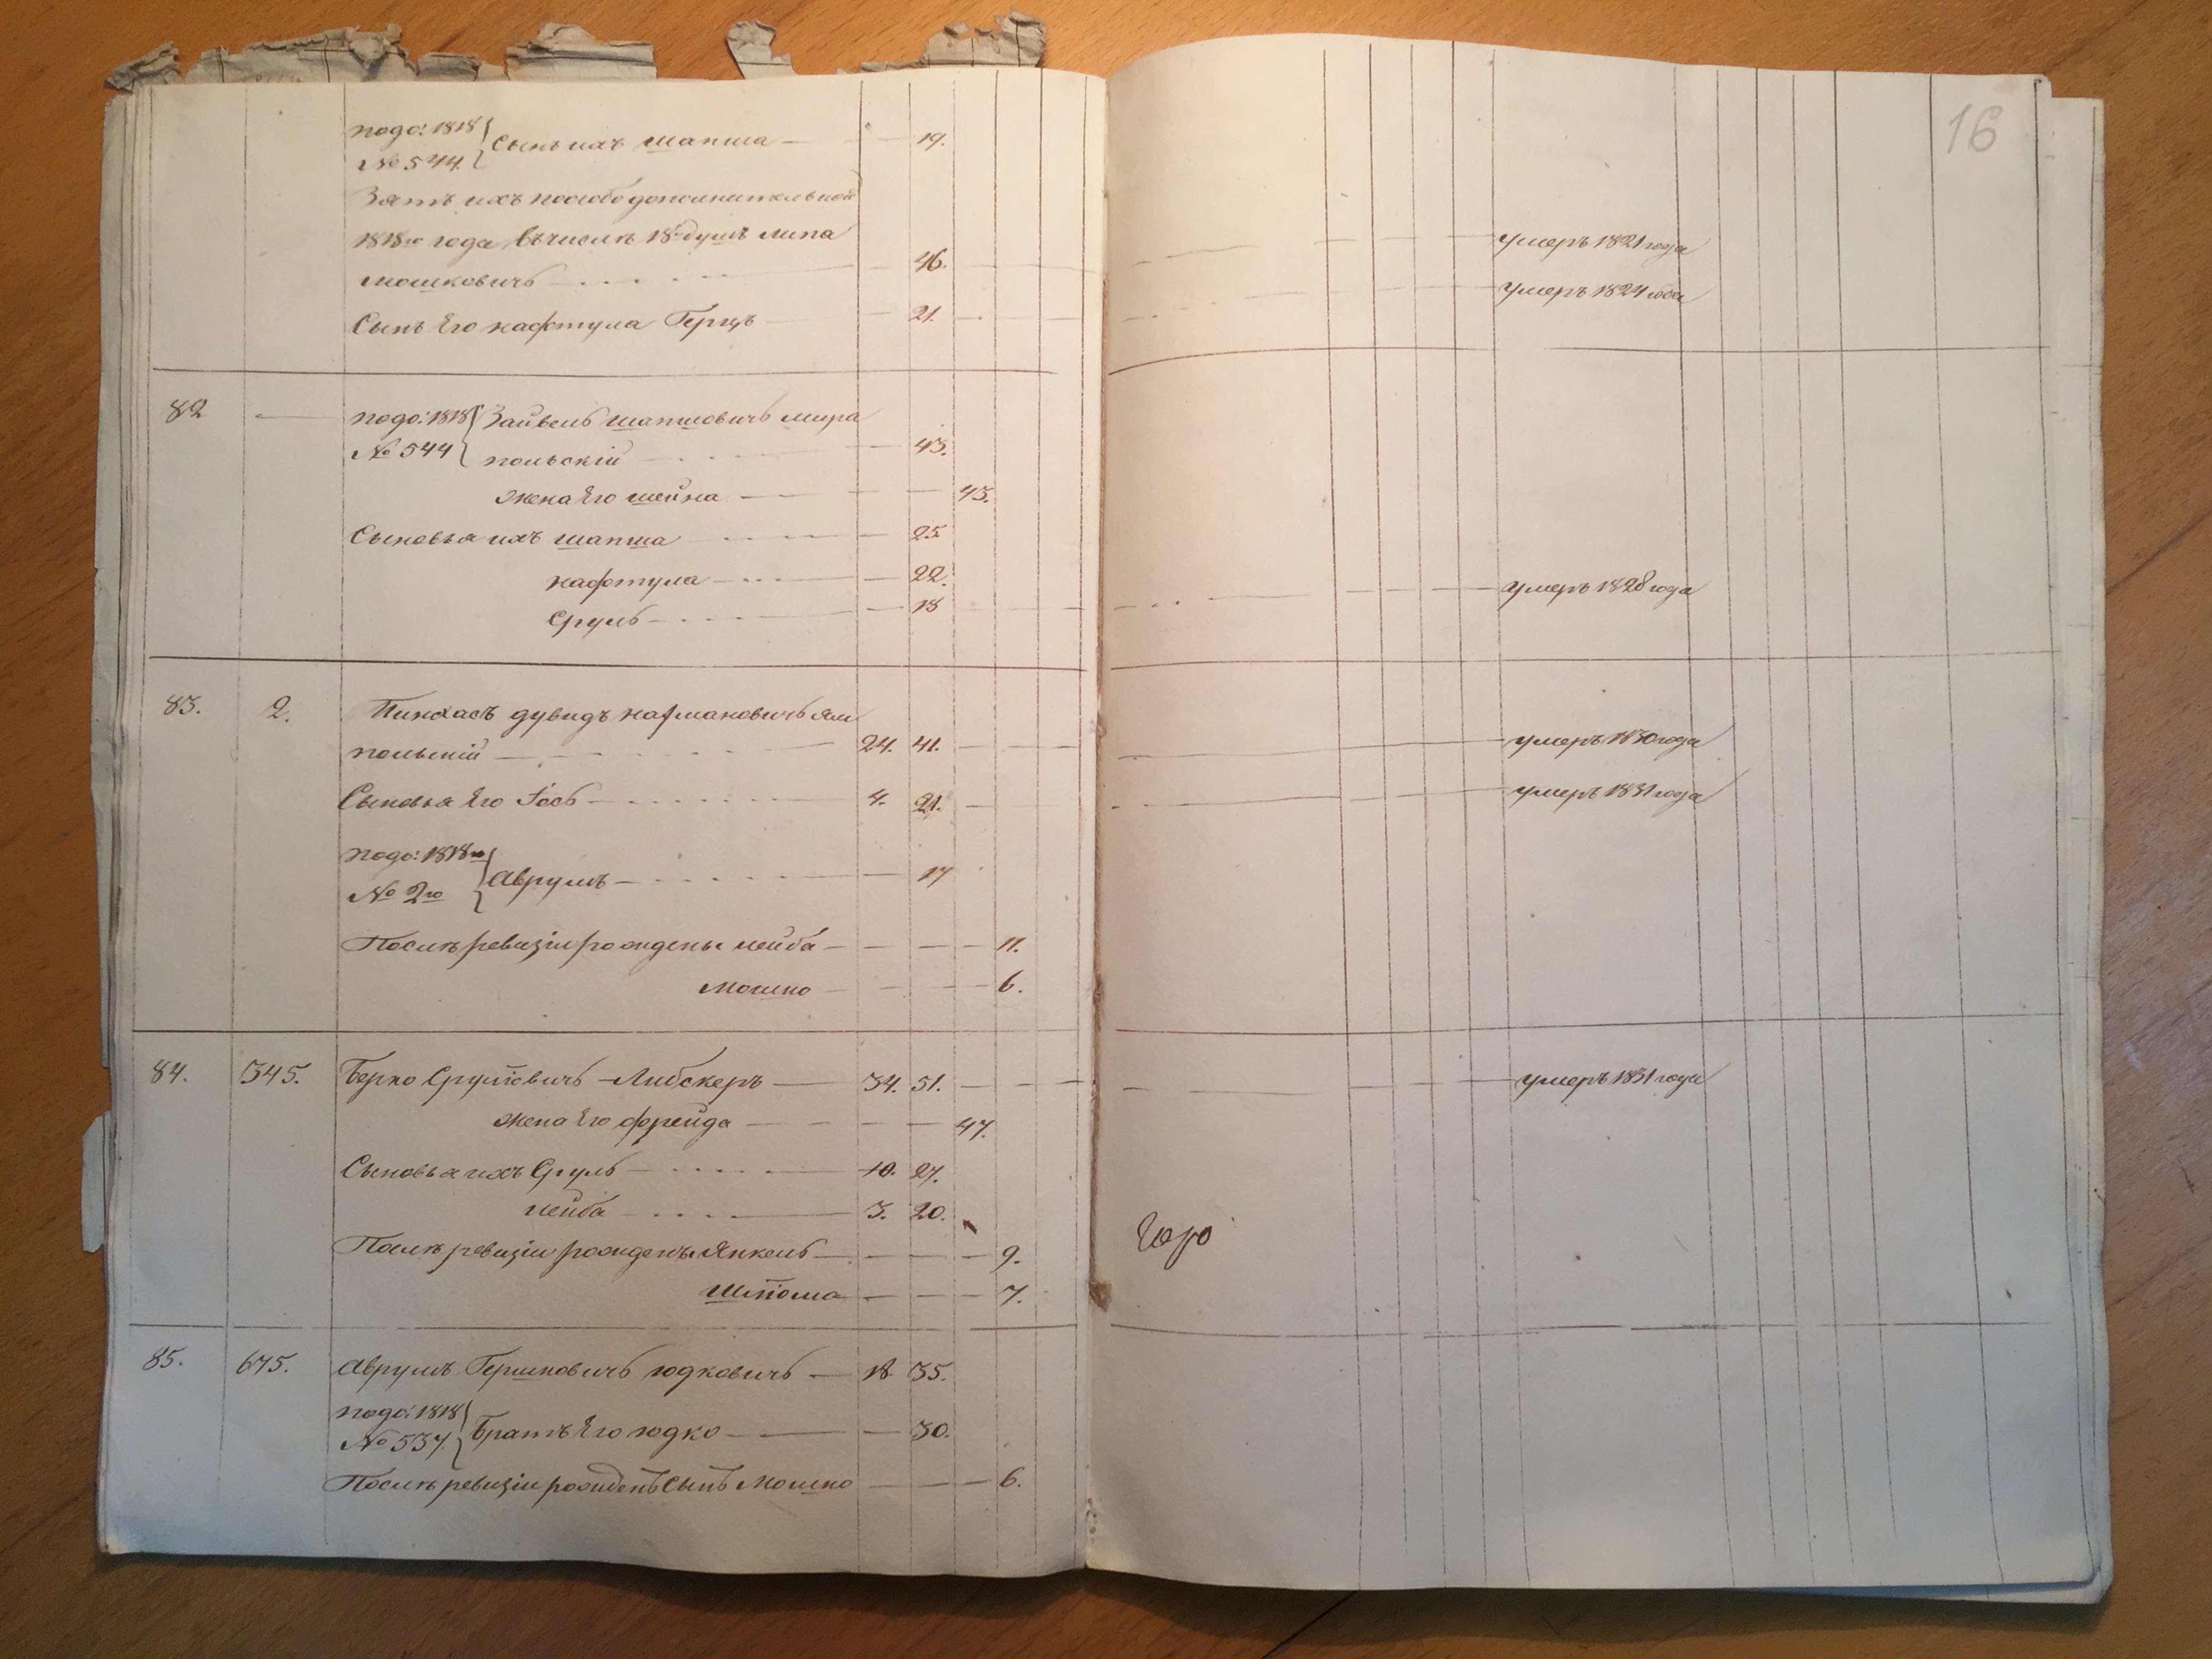 16
подо: 1818
№ 544. Сынъ ихъ шапша — 19.
Зять ихъ пособо дополнительной
1818го года въ числѣ 18 душъ липа
мошковичъ — 46. умеръ 1821 года
Сынъ Его нафтула Герцъ 21. умеръ 1824 года
82 — подо: 1818 Зайвель шапшовичъ мира
№ 544 польскій — 43.
жена Его шейна — 43.
Сыновья ихъ шапша — 25
нафтула — 22.
Сруль — 18 умеръ 1828 года
83. 2. Пинхасъ дувидъ нахмановичъ ям
польскій — 24. 41. умеръ 1830 года
Сыновья Его Іосъ — 4. 21. умеръ 1831 года
подо: 1818го
№ 2го Аврумъ — 17
Послѣ ревизіи рождены лейба — 11.
мошко — 6.
84. 345. Берко Срулёвичъ Либскеръ — 34. 51. умеръ 1831 года
жена Его фрейда — 47.
Сыновья ихъ Сруль — 10. 27.
лейба — 3. 20.
Послѣ ревизіи рожденъ Янкель — 9.
шлёма — 7.
85. 675. Аврумъ Гершковичъ юдковичъ — 18 35.
подо: 1818
№ 537. Братъ Его юдко — 30.
Послѣ ревизіи рожденъ Сынъ Мошко — 6.